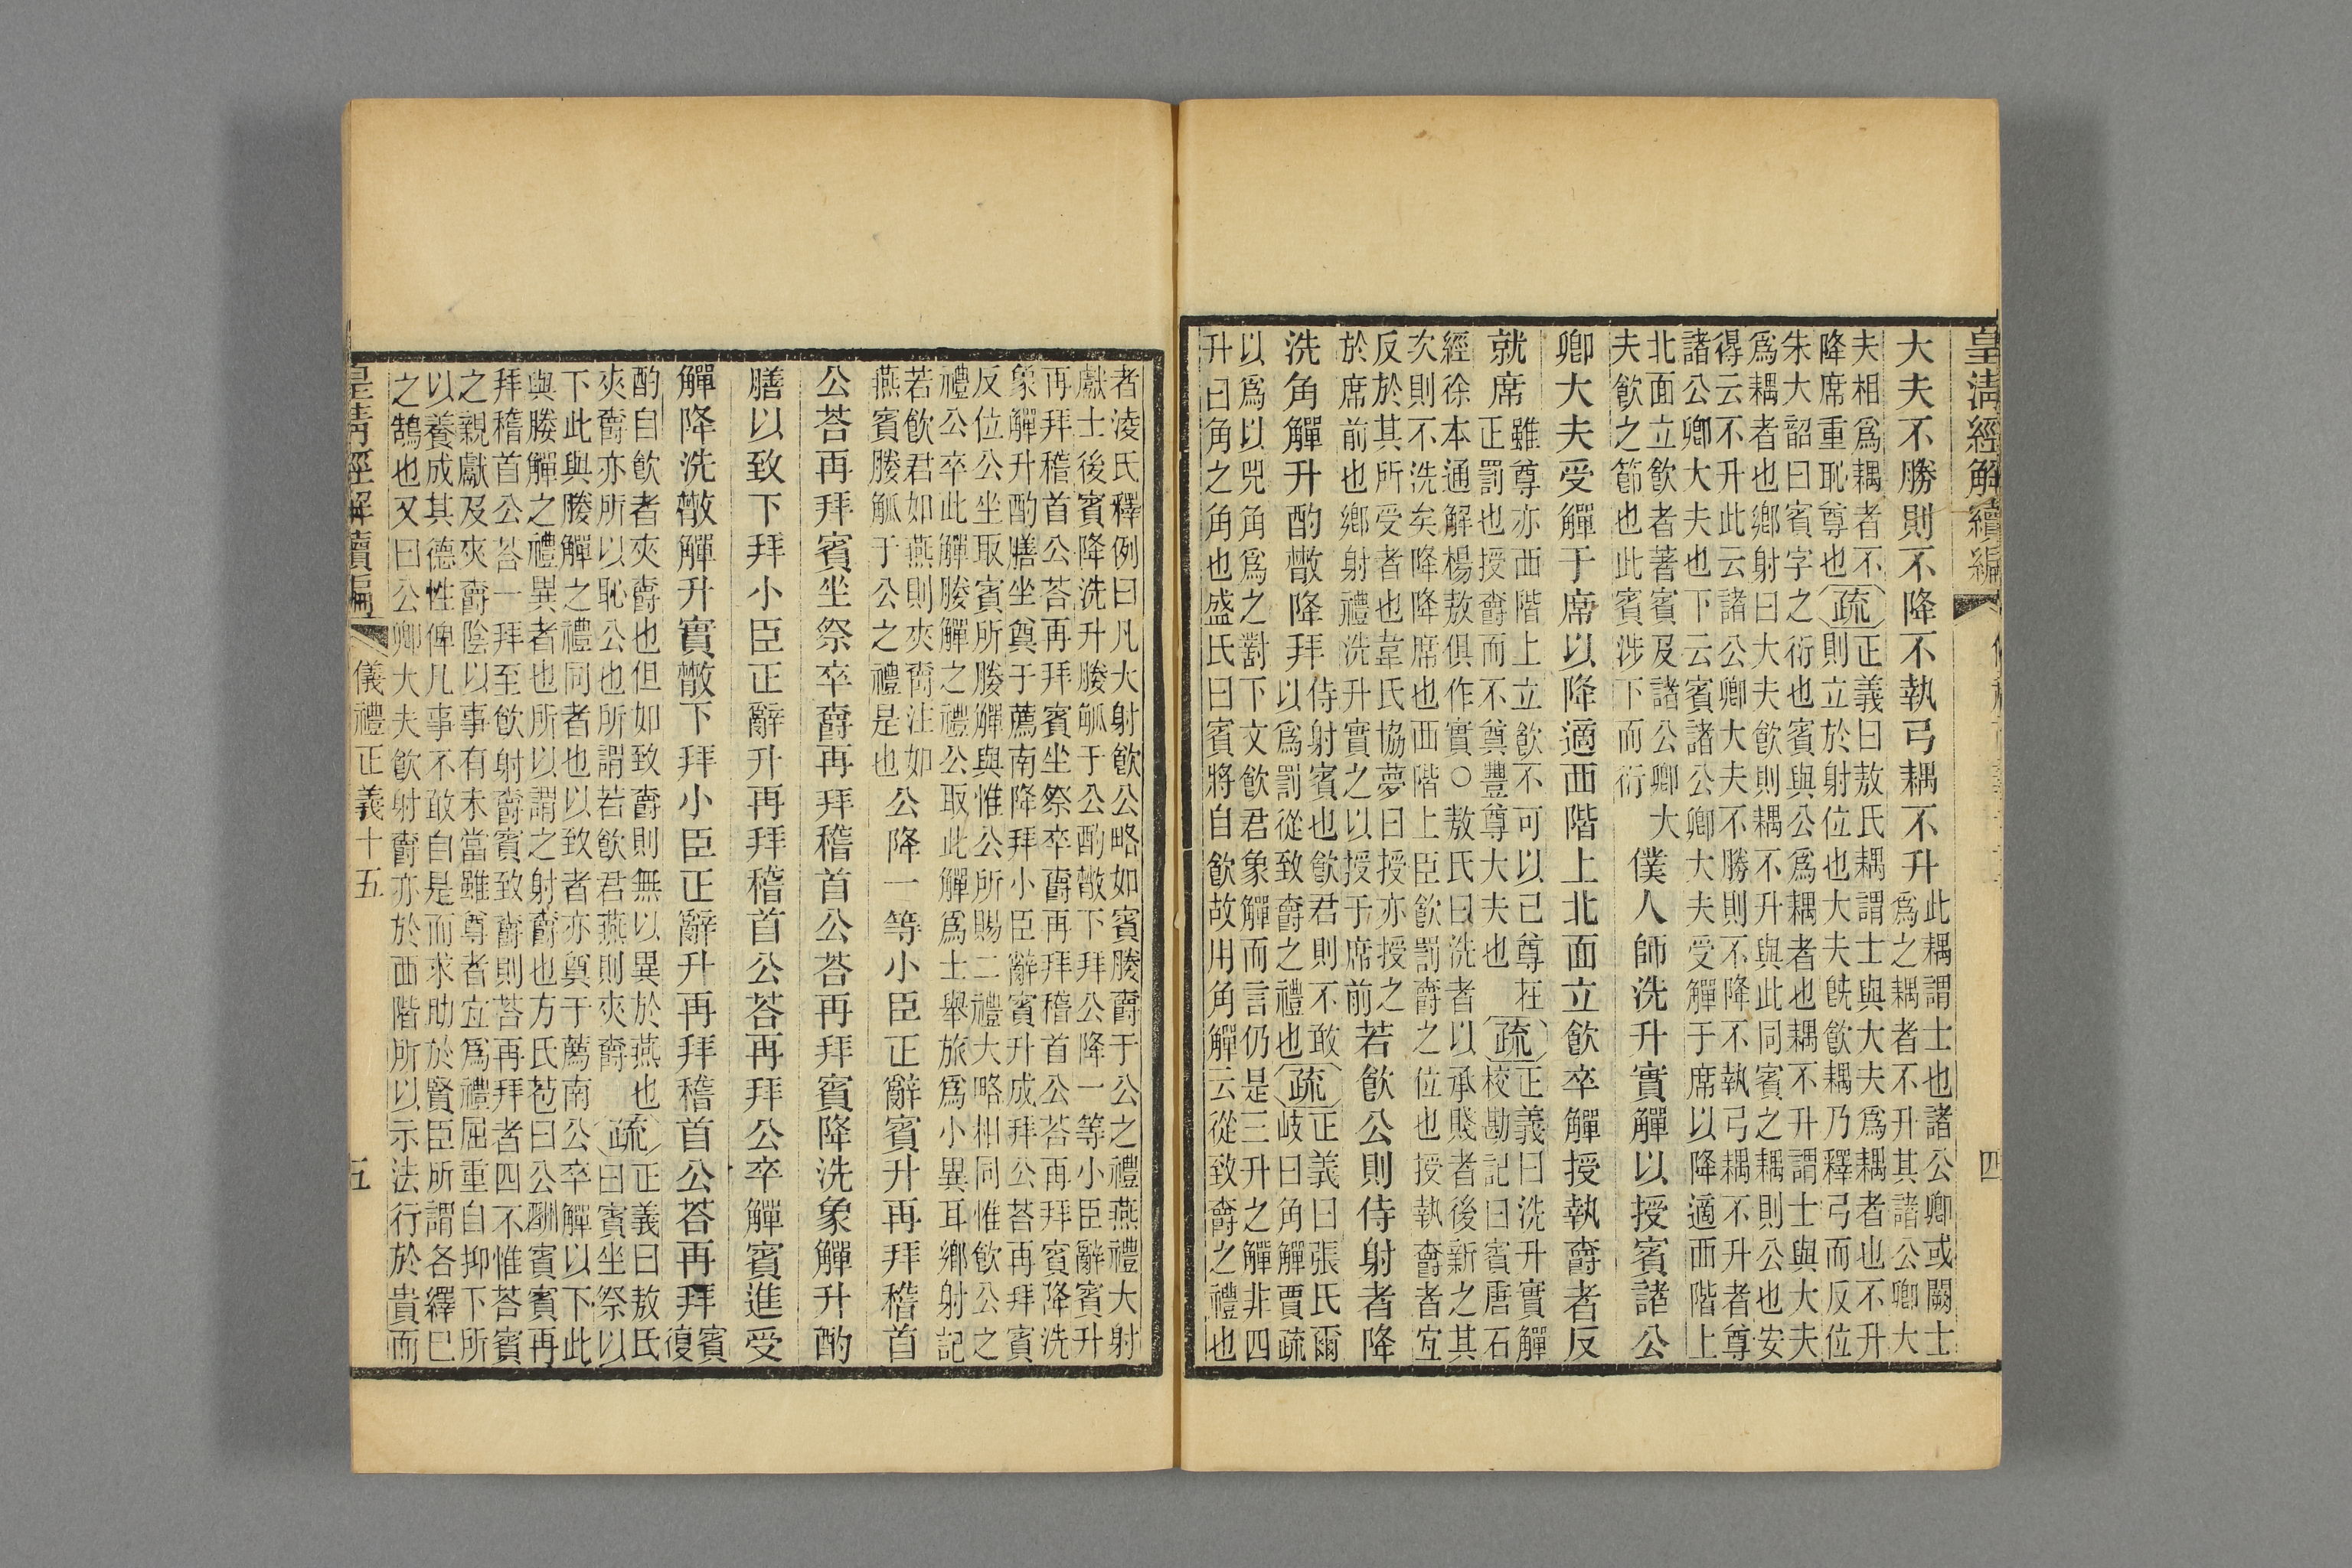 皇清經解續編
四
大夫不勝則不降不執弓耦不升
此耦謂士也諸公卿或闕士
爲之耦者不升其諸公卿大
夫相爲耦者不
降席重恥尊也
疏
正義曰敖氏耦謂士與大夫爲耦者也不升
則立於射位也大夫旣飮耦乃釋弓而反位
朱大韶曰賓字之衍也賓與公爲耦者也耦不升謂士與大夫
爲耦者也鄉射曰大夫飮則耦不升與此同賓之耦則公也安
得云不升此云諸公卿大夫不勝則不降不執弓耦不升者尊
諸公卿大夫也下云賓諸公卿大夫受觶于席以降適西階上
北面立飮者著賓及諸公卿大
夫飮之節也此賓涉下而衍
僕人師洗升實觶以授賓諸公
卿大夫受觶于席以降適西階上北面立飮卒觶授執爵者反
就席
雖尊亦西階上立飮不可以已尊在
正罰也授爵而不奠豐尊大夫也
疏
正義曰洗升實觶
校勘記曰賓唐石
經徐本通解楊敖俱作實○敖氏曰洗者以承賤者後新之其
次則不洗矣降降席也西階上臣飮罰爵之位也授執爵者宜
反於其所受者也韋氏協夢曰授亦授之
於席前也鄉射禮洗升實之以授于席前
若飮公則侍射者降
洗角觶升酌散降拜
侍射賓也飮君則不敢
以爲罰從致爵之禮也
疏
正義曰張氏爾
岐曰角觶賈疏
以爲以兕角爲之對下文飮君象觶而言仍是三升之觶非四
升曰角之角也盛氏曰賓將自飮故用角觶云從致爵之禮也
者淩氏釋例曰凡大射飮公略如賓媵爵于公之禮燕禮大射
獻士後賓降洗升媵觚于公酌散下拜公降一等小臣辭賓升
再拜稽首公荅再拜賓坐祭卒爵再拜稽首公荅再拜賓降洗
象觶升酌膳坐奠于薦南降拜小臣辭賓升成拜公荅再拜賓
反位公坐取賓所媵觶與惟公所賜二禮大略相同惟飮公之
禮公卒此觶媵觶之禮公取此觶爲士舉旅爲小異耳鄉射記
若飮君如燕則夾爵注如
燕賓媵觚于公之禮是也
公降一等小臣正辭賓升再拜稽首
公荅再拜賓坐祭卒爵再拜稽首公荅再拜賓降洗象觶升酌
膳以致下拜小臣正辭升再拜稽首公荅再拜公卒觶賓進受
觶降洗散觶升實散下拜小臣正辭升再拜稽首公荅再拜
賓
復
酌自飮者夾爵也但如致爵則無以異於燕也
夾爵亦所以恥公也所謂若飮君燕則夾爵
疏
正義曰敖氏
曰賓坐祭以
下此與媵觶之禮同者也以致者亦奠于薦南公卒觶以下此
與媵觶之禮異者也所以謂之射爵也方氏苞曰公酬賓賓再
拜稽首公荅一拜至飮射爵賓致爵則荅再拜者四不惟荅賓
之親獻及夾爵陰以事有未當雖尊者宜爲禮屈重自抑下所
以養成其德性俾凡事不敢自是而求助於賢臣所謂各繹已
之鵠也又曰公卿大夫飮射爵亦於西階所以示法行於貴而
皇清經解續編
儀禮正義十五
五